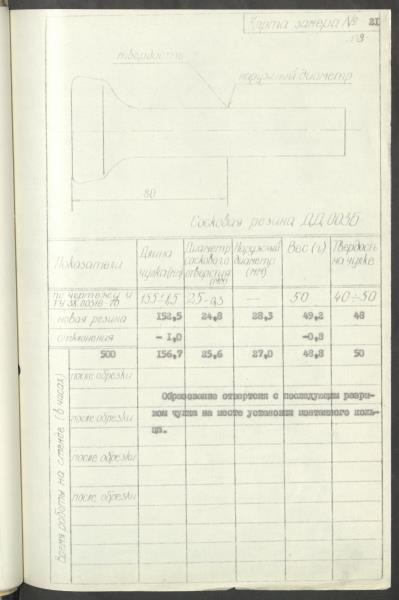 Карта замера № 21
твердость
наружный диаметр
80
Сосковая резина ДД.003Б
Показатели Длина чулка(мм) Диаметр соскового отверстия (мм) Наружный диаметр (мм) Вес (г) Твердость на чулке
по чертежу и 155±1,5 25-0,3 — 50 40÷50
новая резина 152,5 24,8 28,3 49,2 48
отклонения - 1,0 -0,8
500 156,7 25,6 27,0 48,8 50
Время работы на стенде (в часах)
после обрезки
Образование отверстия с последующим разры-
после обрезки вом чулка на месте установки монтажного коль-
ца.
после обрезки
после обрезки